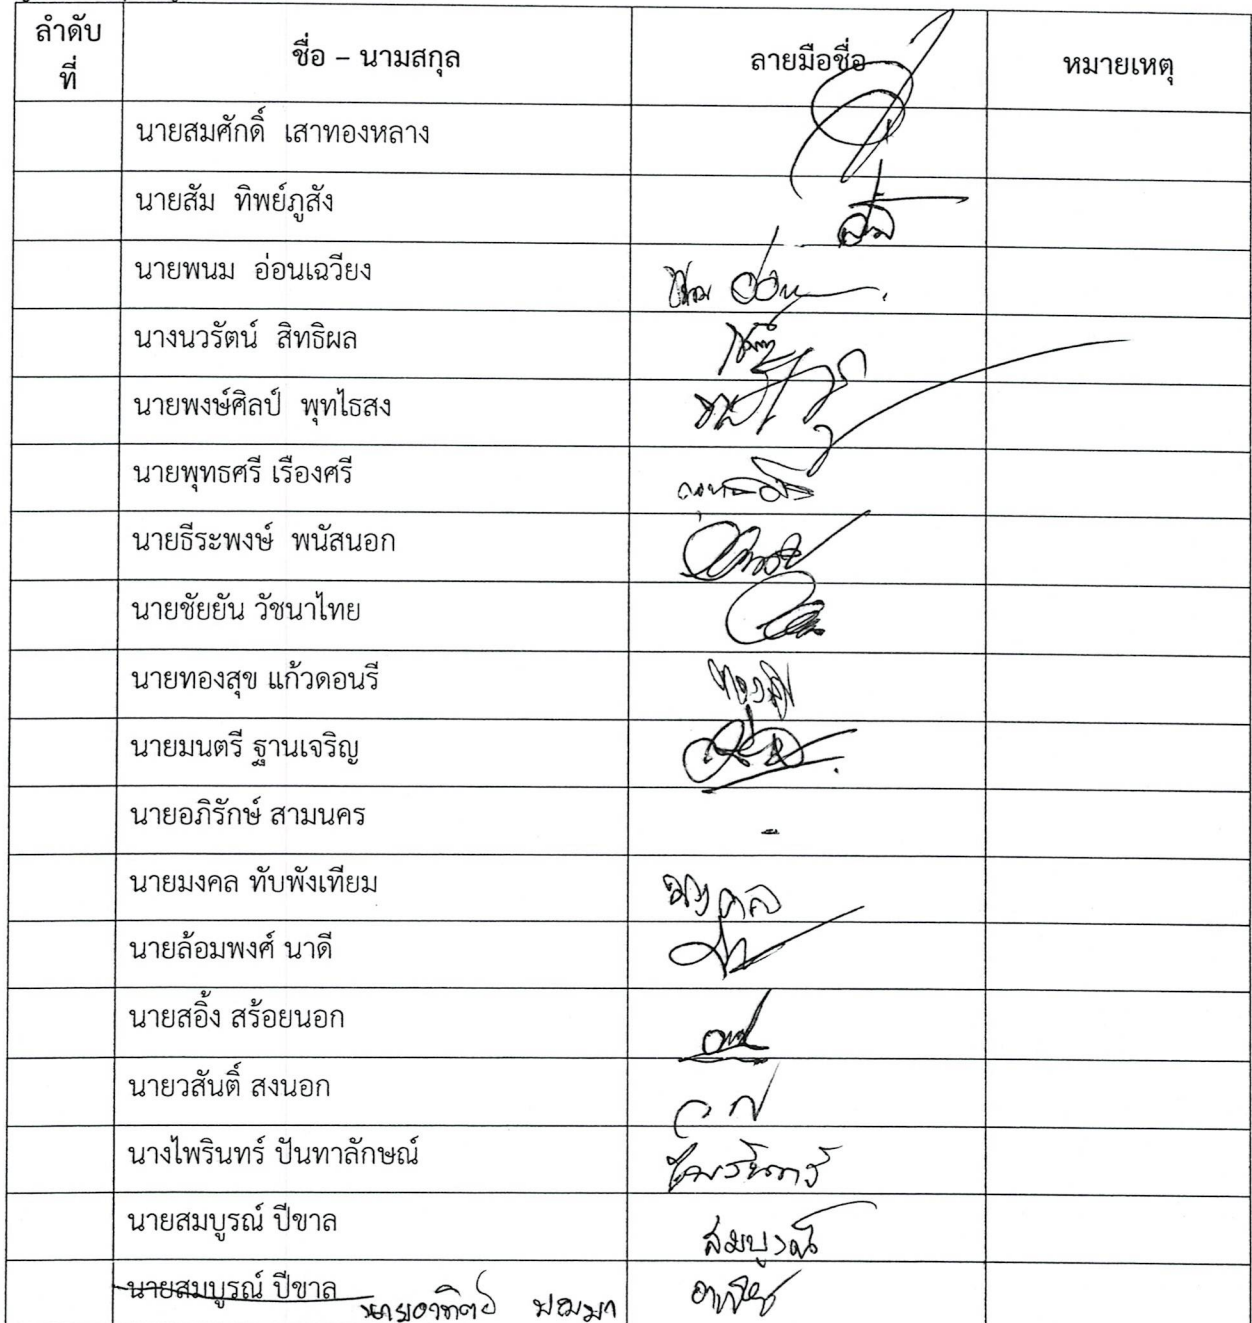 ลำดับ
ที่
ชื่อ – นามสกุล
ลายมือชื่อ
หมายเหตุ
นายสมศักดิ์ เสาทองหลาง
นายสัม ทิพย์ภูสัง
นายพนม อ่อนเฉวียง
นางนวรัตน์ สิทธิผล
นายพงษ์ศิลป์ พุทไธสง
นายพุทธศรี เรืองศรี
นายธีระพงษ์ พนัสนอก
นายชัยยัน วัชนาไทย
นายทองสุข แก้วดอนรี
ทองสุข
นายมนตรี ฐานเจริญ
นายอภิรักษ์ สามนคร
-
นายมงคล ทับพังเทียม
มงคล
นายล้อมพงศ์ นาดี
นายสอิ้ง สร้อยนอก
นายวสันติ์ สงนอก
นางไพรินทร์ ปันทาลักษณ์
ไพรินทร์
นายสมบูรณ์ ปีขาล
สมบูรณ์
นายสมบูรณ์ ปีขาล
นายอาทิตย์